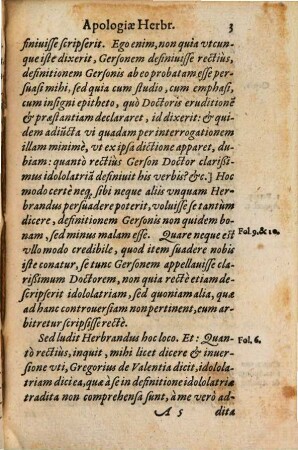 Apologiæ Herbr. 3
finiuisse scripserit. Ego enim, non quia vtcun-
que iste dixerit, Gersonem definiuisse rectiùs,
definitionem Gersonis ab eo probatam esse per-
suasi mihi, sed quia cum studio, cum emphasi,
cum insigni epitheto, quò Doctoris eruditionē
& præstantiam declararet, id dixerit: & qui-
dem adiūcta vi quadam per interrogationem
illam minimè, vt ex ipsa dictione apparet, du-
biam: quantò rectiùs Gerson Doctor clarissi-
mus idololatriā definiuit his verbis? &c.] Hoc
modo certè neq; sibi neque aliis vnquam Her-
brandus persuadere poterit, voluisse se tantùm
dicere, definitionem Gersonis non quidem bo-
nam, sed minus malam esse. Quare neque est
vllo modo credibile, quod item suadere nobis
iste conatur, se tunc Gersonem appellauisse cla-
rissimum Doctorem, non quia rectè etiam de-
scripserit idololatriam, sed quoniam alia, quæ ad
hanc controuersiam non pertinent, eum ar-
bitretur scripsisse rectè.
Fol. 9. & 10.
Sed ludit Herbrandus hoc loco. Et: Quan-
tò rectiùs, inquit, mihi licet dicere & inuer-
sione vti, Gregorius de Valentia dicit, idolola-
triam dici ea, quæ à se in definitione idololatriæ
tradita non comprehensa sunt, à me verò ad-
Fol. 6.
A 5 dita